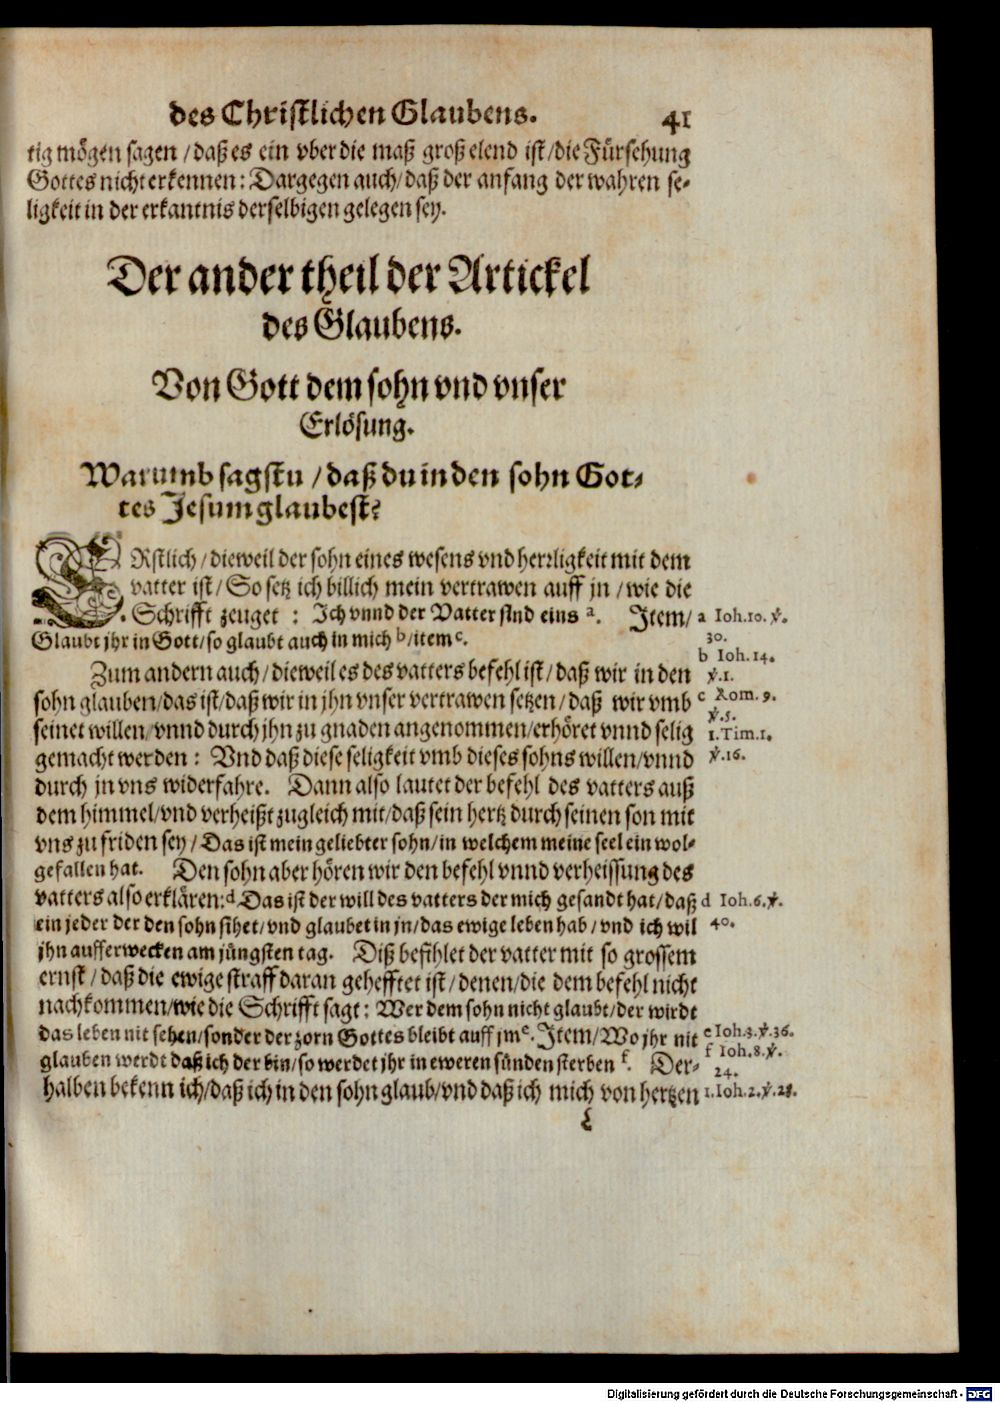 des Christlichen Glaubens. 41
tig mögen sagen / daß es ein vber die maß groß elend ist / die Fürsehung
Gottes nicht erkennen: Dargegen auch / daß der anfang der wahren se-
ligkeit in der erkantnis derselbigen gelegen sey.
Der ander theil der Artickel
des Glaubens.
Von Gott dem sohn vnd vnser
Erlösung.
Warumb sagstu / daß du in den sohn Got-
tes Jesum glaubest?
ERstlich / dieweil der sohn eines wesens vnd herrligkeit mit dem
vatter ist / So setz ich billich mein vertrawen auff jn / wie die
Schrifft zeuget : Ich vnnd der Vatter sind eins a. Item / a Ioh.10.℣.
30.
Glaubt jhr in Gott / so glaubt auch in mich b / item c.
b Ioh.14.
Zum andern auch / dieweil es des vatters befehl ist / daß wir in den ℣.1.
sohn glauben / das ist / daß wir in jhn vnser vertrawen setzen / daß wir vmb c Rom. 9.
℣.5.
seinet willen / vnnd durch jhn zu gnaden angenommen / erhöret vnnd selig 1.Tim.1.
gemacht werden : Vnd daß diese seligkeit vmb dieses sohns willen / vnnd ℣.16.
durch jn vns widerfahre. Dann also lautet der befehl des vatters auß
dem himmel / vnd verheißt zugleich mit / daß sein hertz durch seinen son mit
vns zu friden sey / Das ist mein geliebter sohn / in welchem meine seel ein wol-
gefallen hat. Den sohn aber hören wir den befehl vnnd verheissung des
vatters also erklären: d Das ist der will des vatters der mich gesandt hat / daß d Ioh.6.℣.
ein jeder der den sohn sihet / vnd glaubet in jn / das ewige leben hab / vnd ich wil 40.
jhn aufferwecken am jüngsten tag. Diß befihlet der vatter mit so grossem
ernst / daß die ewige straff daran gehefftet ist / denen / die dem befehl nicht
nachkommen / wie die Schrifft sagt: Wer dem sohn nicht glaubt / der wirdt
das leben nit sehen / sonder der zorn Gottes bleibt auff jm e. Item / Wo jhr nit e Ioh.3.℣.36.
glauben werdt daß ich der bin / so werdet jhr in eweren sünden sterben f. Der- f Ioh.8.℣.
24.
halben bekenn ich / daß ich in den sohn glaub / vnd daß ich mich von hertzen 1.Ioh.2.℣.28.
Digitalisierung gefördert durch die Deutsche Forschungsgemeinschaft - DFG